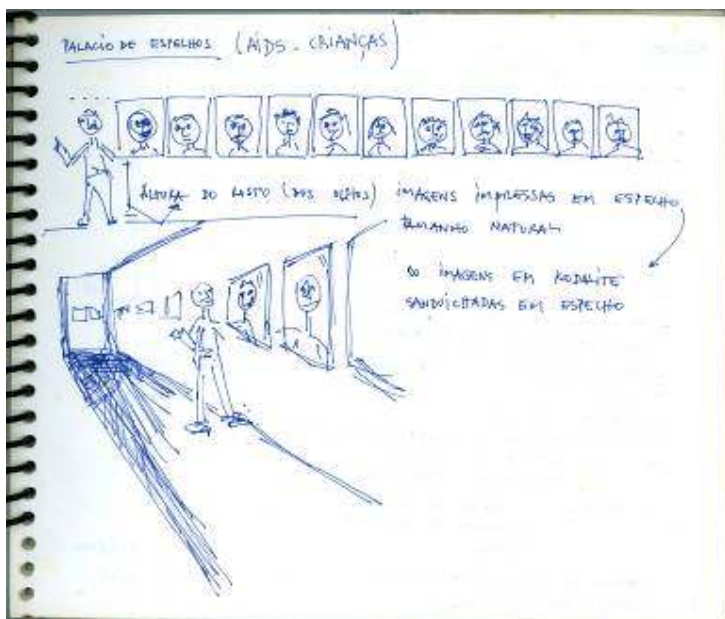 PALACIO DE ESPELHOS (AIDS - CRIANÇAS)
ALTURA DO ROSTO (DOS OLHOS) IMAGENS IMPRESSAS EM ESPELHO
TAMANHO NATURAL
OU IMAGENS EM KODALITE
SANDUICHADAS EM ESPELHO